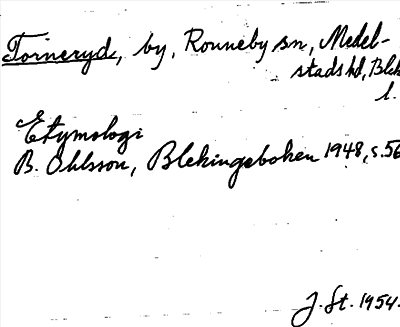 Torneryd, by, Ronneby sn, Medel-
stads hd, Blek
l.
Etymologi
B. Ohlsson, Blekingeboken 1948, s. 56
J. St. 1954.